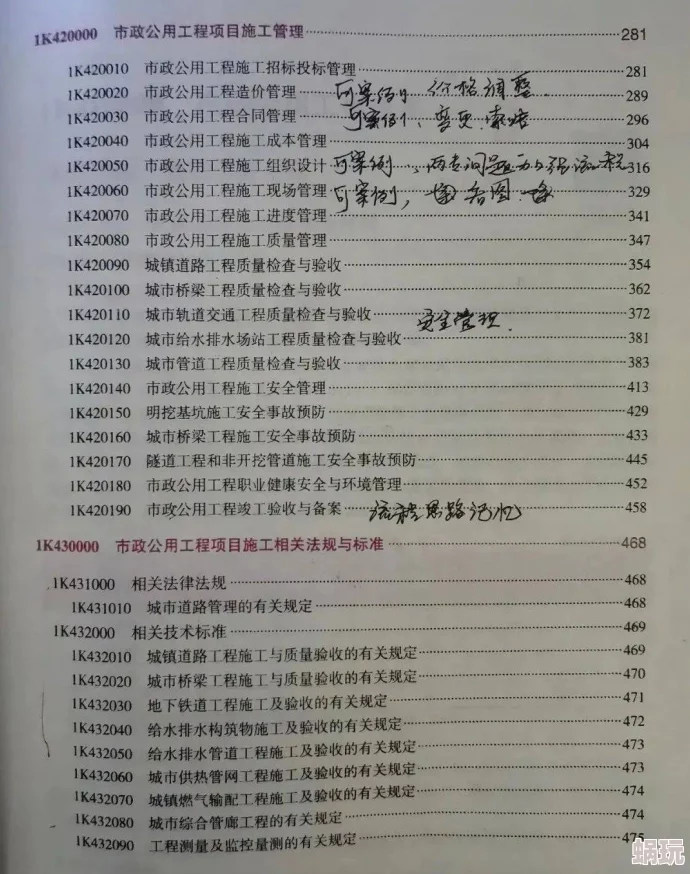 1K420000 市政公用工程项目施工管理 281
1K420010 市政公用工程施工招标投标管理 281
1K420020 市政公用工程造价管理 可案例, 价格调整 289
1K420030 市政公用工程合同管理 可案例, 变更.索赔 296
1K420040 市政公用工程施工成本管理 304
1K420050 市政公用工程施工组织设计 可案例 316
1K420060 市政公用工程施工现场管理 可案例, 329
1K420070 市政公用工程施工进度管理 341
1K420080 市政公用工程施工质量管理 347
1K420090 城镇道路工程质量检查与验收 354
1K420100 城市桥梁工程质量检查与验收 362
1K420110 城市轨道交通工程质量检查与验收 372
1K420120 城市给水排水场站工程质量检查与验收 安全管理. 381
1K420130 城市管道工程质量检查与验收 383
1K420140 市政公用工程施工安全管理 413
1K420150 明挖基坑施工安全事故预防 429
1K420160 城市桥梁工程施工安全事故预防 433
1K420170 隧道工程和非开挖管道施工安全事故预防 445
1K420180 市政公用工程职业健康安全与环境管理 452
1K420190 市政公用工程竣工验收与备案 流程思路记忆 458
1K430000 市政公用工程项目施工相关法规与标准 468
1K431000 相关法律法规 468
1K431010 城市道路管理的有关规定 468
1K432000 相关技术标准 469
1K432010 城镇道路工程施工与质量验收的有关规定 469
1K432020 城市桥梁工程施工与质量验收的有关规定 470
1K432030 地下铁道工程施工及验收的有关规定 471
1K432040 给水排水构筑物施工及验收的有关规定 472
1K432050 给水排水管道工程施工及验收的有关规定 473
1K432060 城市供热管网工程施工及验收的有关规定 473
1K432070 城镇燃气输配工程施工及验收的有关规定 474
1K432080 城市综合管廊工程的有关规定 474
1K432090 工程测量及监控量测的有关规定 475
蜗玩